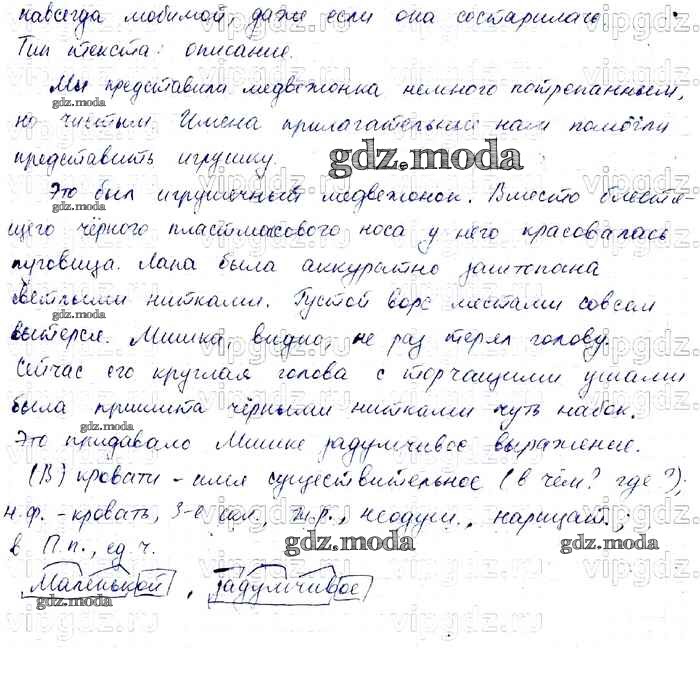 навсегда любимой, даже если она состарилась.
Тип текста: описание.
Мы представили медвежонка немного потрёпанным,
но чистым. Имена прилагательные нам помогли
представить игрушку.
Это был игрушечный медвежонок. Вместо блестя-
щего чёрного пластмасового носа у него красовалась
пуговица. Лапа была аккуратно заштопана
светлыми нитками. Густой ворс местами совсем
вытерся. Мишка, видно, не раз терял голову.
Сейчас его круглая голова с торчащими ушами
была пришита чёрными нитками чуть набок.
Это придавало Мишке задумчивое выражение.
(В) кровати - имя существительное (в чём? где?);
н.ф. - кровать, 3-е скл., ж.р., неодуш., нарицат.;
в П.п., ед.ч.
Маленькой, задумчивое
gdz.moda
gdz.moda
gdz.moda
gdz.moda
gdz.moda
gdz.moda
gdz.moda
gdz.moda
gdz.moda
vipgdz.ru